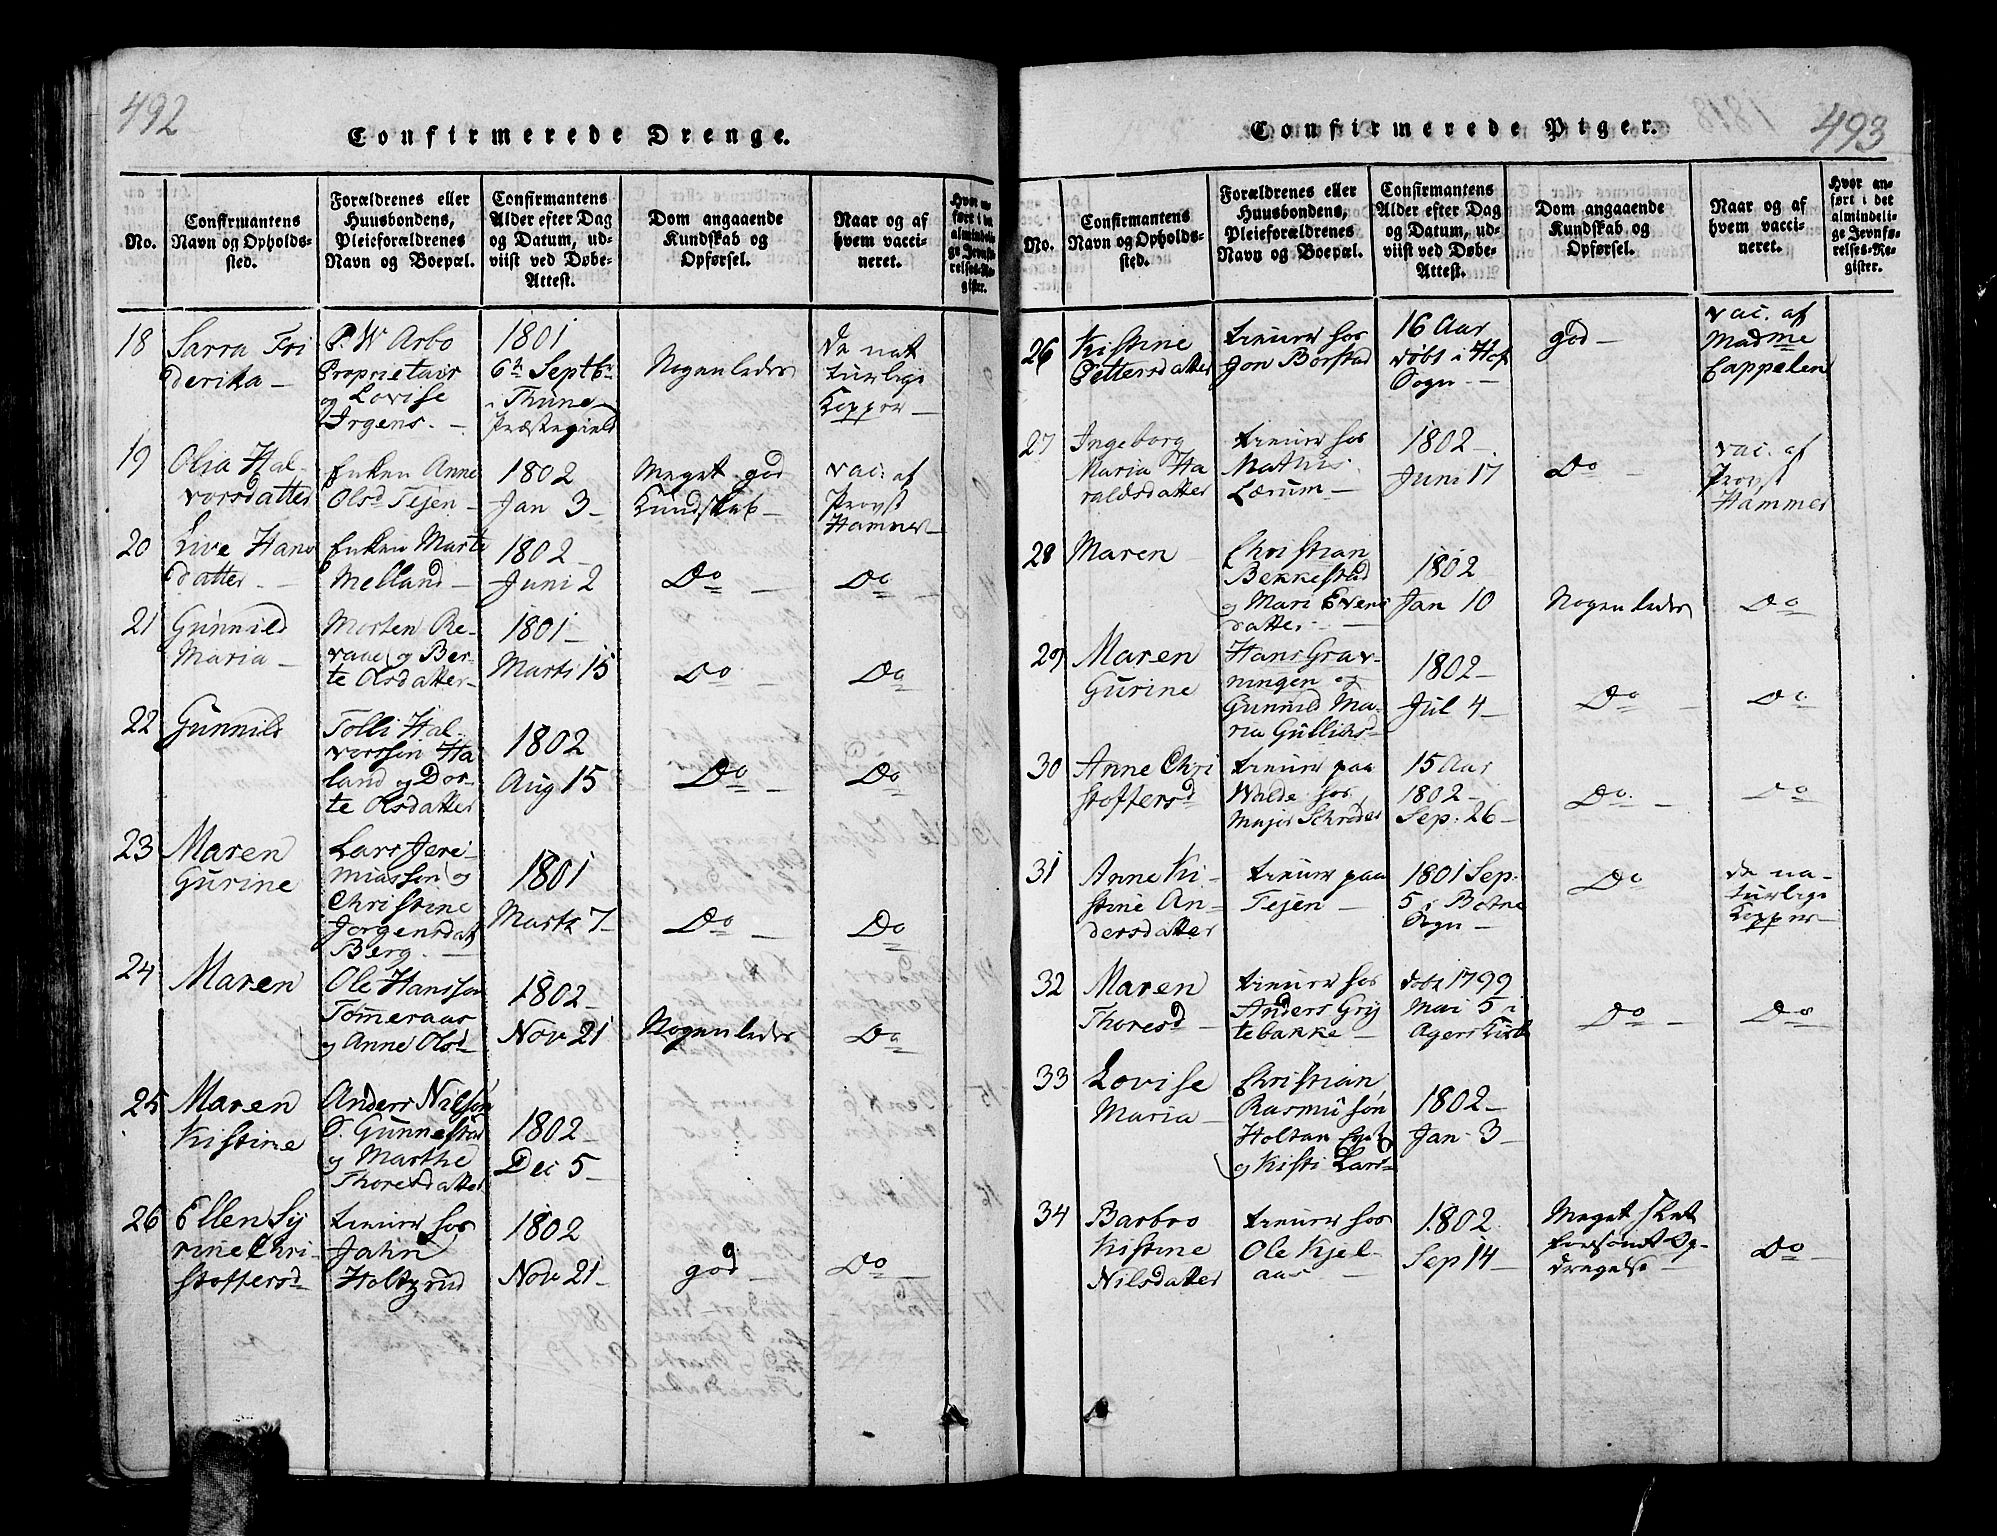 492
Confirmerede Drenge.
No.
Confirmantens
Navn og Opholds-
sted.
Forældrenes eller
Huusbondens,
Pleieforældrenes
Navn og Boepæl.
Confirmantens
Alder efter Dag
og Datum, ud-
viist ved Døbe-
Attest.
Dom angaaende
Kundskab og
Opførsel.
Naar og af
hvem vacci-
neret.
Hvor an-
ført i det
almindeli-
ge Jevnfø-
relses-Re-
gister.
18
Sarra Fri
derika -
P. W Arbo
Proprietair
og Lovise
Irgens. -
1801
6te Septbr
i Thune
Præstegield
Nogenledes
De nat
turlige
Kopper -
19
Olia Hal-
vorsdatter
Enken Anne
Olsd Tejen -
1802
Jan 3 -
Meget god
Kundskab -
vac. af
Provst
Hammer -
20
Live Hans
datter. -
Enken Marte
Melland -
1802 -
Juni 2
Do -
Do -
21
Gunnild
Maria -
Morten Re-
vaae og Ber-
te Olsdatter -
1801 -
Marts 15
Do -
Do
22
Gunnild
Tolli Hal-
vorssen Ha
land og Dor-
te Olsdatter
1802
Aug 15
Do -
Do
23
Maren
Gurine
Lars Jere-
miassen og
Christine
Jorgensdat
Berg. -
1801
Marts 7 -
Do -
Do
24
Maren
Ole Hanssøn
Tømeraas
og Anne Olsd -
1802 -
Nov 21
Nogenledes
Do
25
Maren
Kistine
Anders Nilsøn
S. Gunnestad
og Marthe
Thoresdatter
1802 -
Dec 5 -
26
Ellen Sy
rine Chri-
stoffersd
tiener hos
Jahn
Holtgrud
1802
Nov 21 -
god -
Do -
493
Confirmerede Piger.
No.
Confirmantens
Navn og Opholds-
sted.
Forældrenes eller
Huusbondens,
Pleieforældrenes
Navn og Boepæl.
Confirmantens
Alder efter Dag
og Datum, ud-
viist ved Døbe-
Attest.
Dom angaaende
Kundskab og
Opførsel.
Naar og af
hvem vacci-
neret.
Hvor an-
ført i det
almindeli-
ge Jevnfø-
relses-Re-
gister.
26
Kistine
Pettersdatter
tiener hos
Jon Borstad
16 Aar
døbt i Hof
Sogn - -
god -
vac. af
Madme
Cappelen
27
Ingeborg
Maria Ha
raldsdatter
tiener hos
Mathis
Lærum -
1802 -
Juni 17
Do -
vac. af
Provst
Hammer
28
Maren -
Christian
Bekkestad
og Mari Evens
datter - -
1802
Jan 10
Nogenledes
Do
29
Maren
Gurine
Hans Grav-
ningen og
Gunnild Ma-
ria Gulliksd -
1802 -
Jul 4 -
Do -
Do
30
Anne Chri
stoffersd
tiener paa
Walde hos
Major Schrøder
15 Aar
1802 -
Sep. 26 -
Do. -
Do
31
Anne Ki-
stine An-
dersdatter
tiener paa
Tejen -
1801 Sep.
5 i Botne
Sogn -
Do
de na-
turlige
Kopper -
32
Maren
Thoresd -
tiener hos
Anders Gry
tebakke -
døbt 1799
Mai 5 i
Agers Kirke
Do -
Do -
33
Lovise
Maria -
Christian
Rasmussøn
Holtan
og Kisti Lars -
1802 -
Jan - 3 -
34
Barbro
Kistine
Nilsdatter
tiener hos
Ole Kjel-
aas -
1802
Sep 14 -
Meget slet
forsømt Op-
dragelse -
Do -